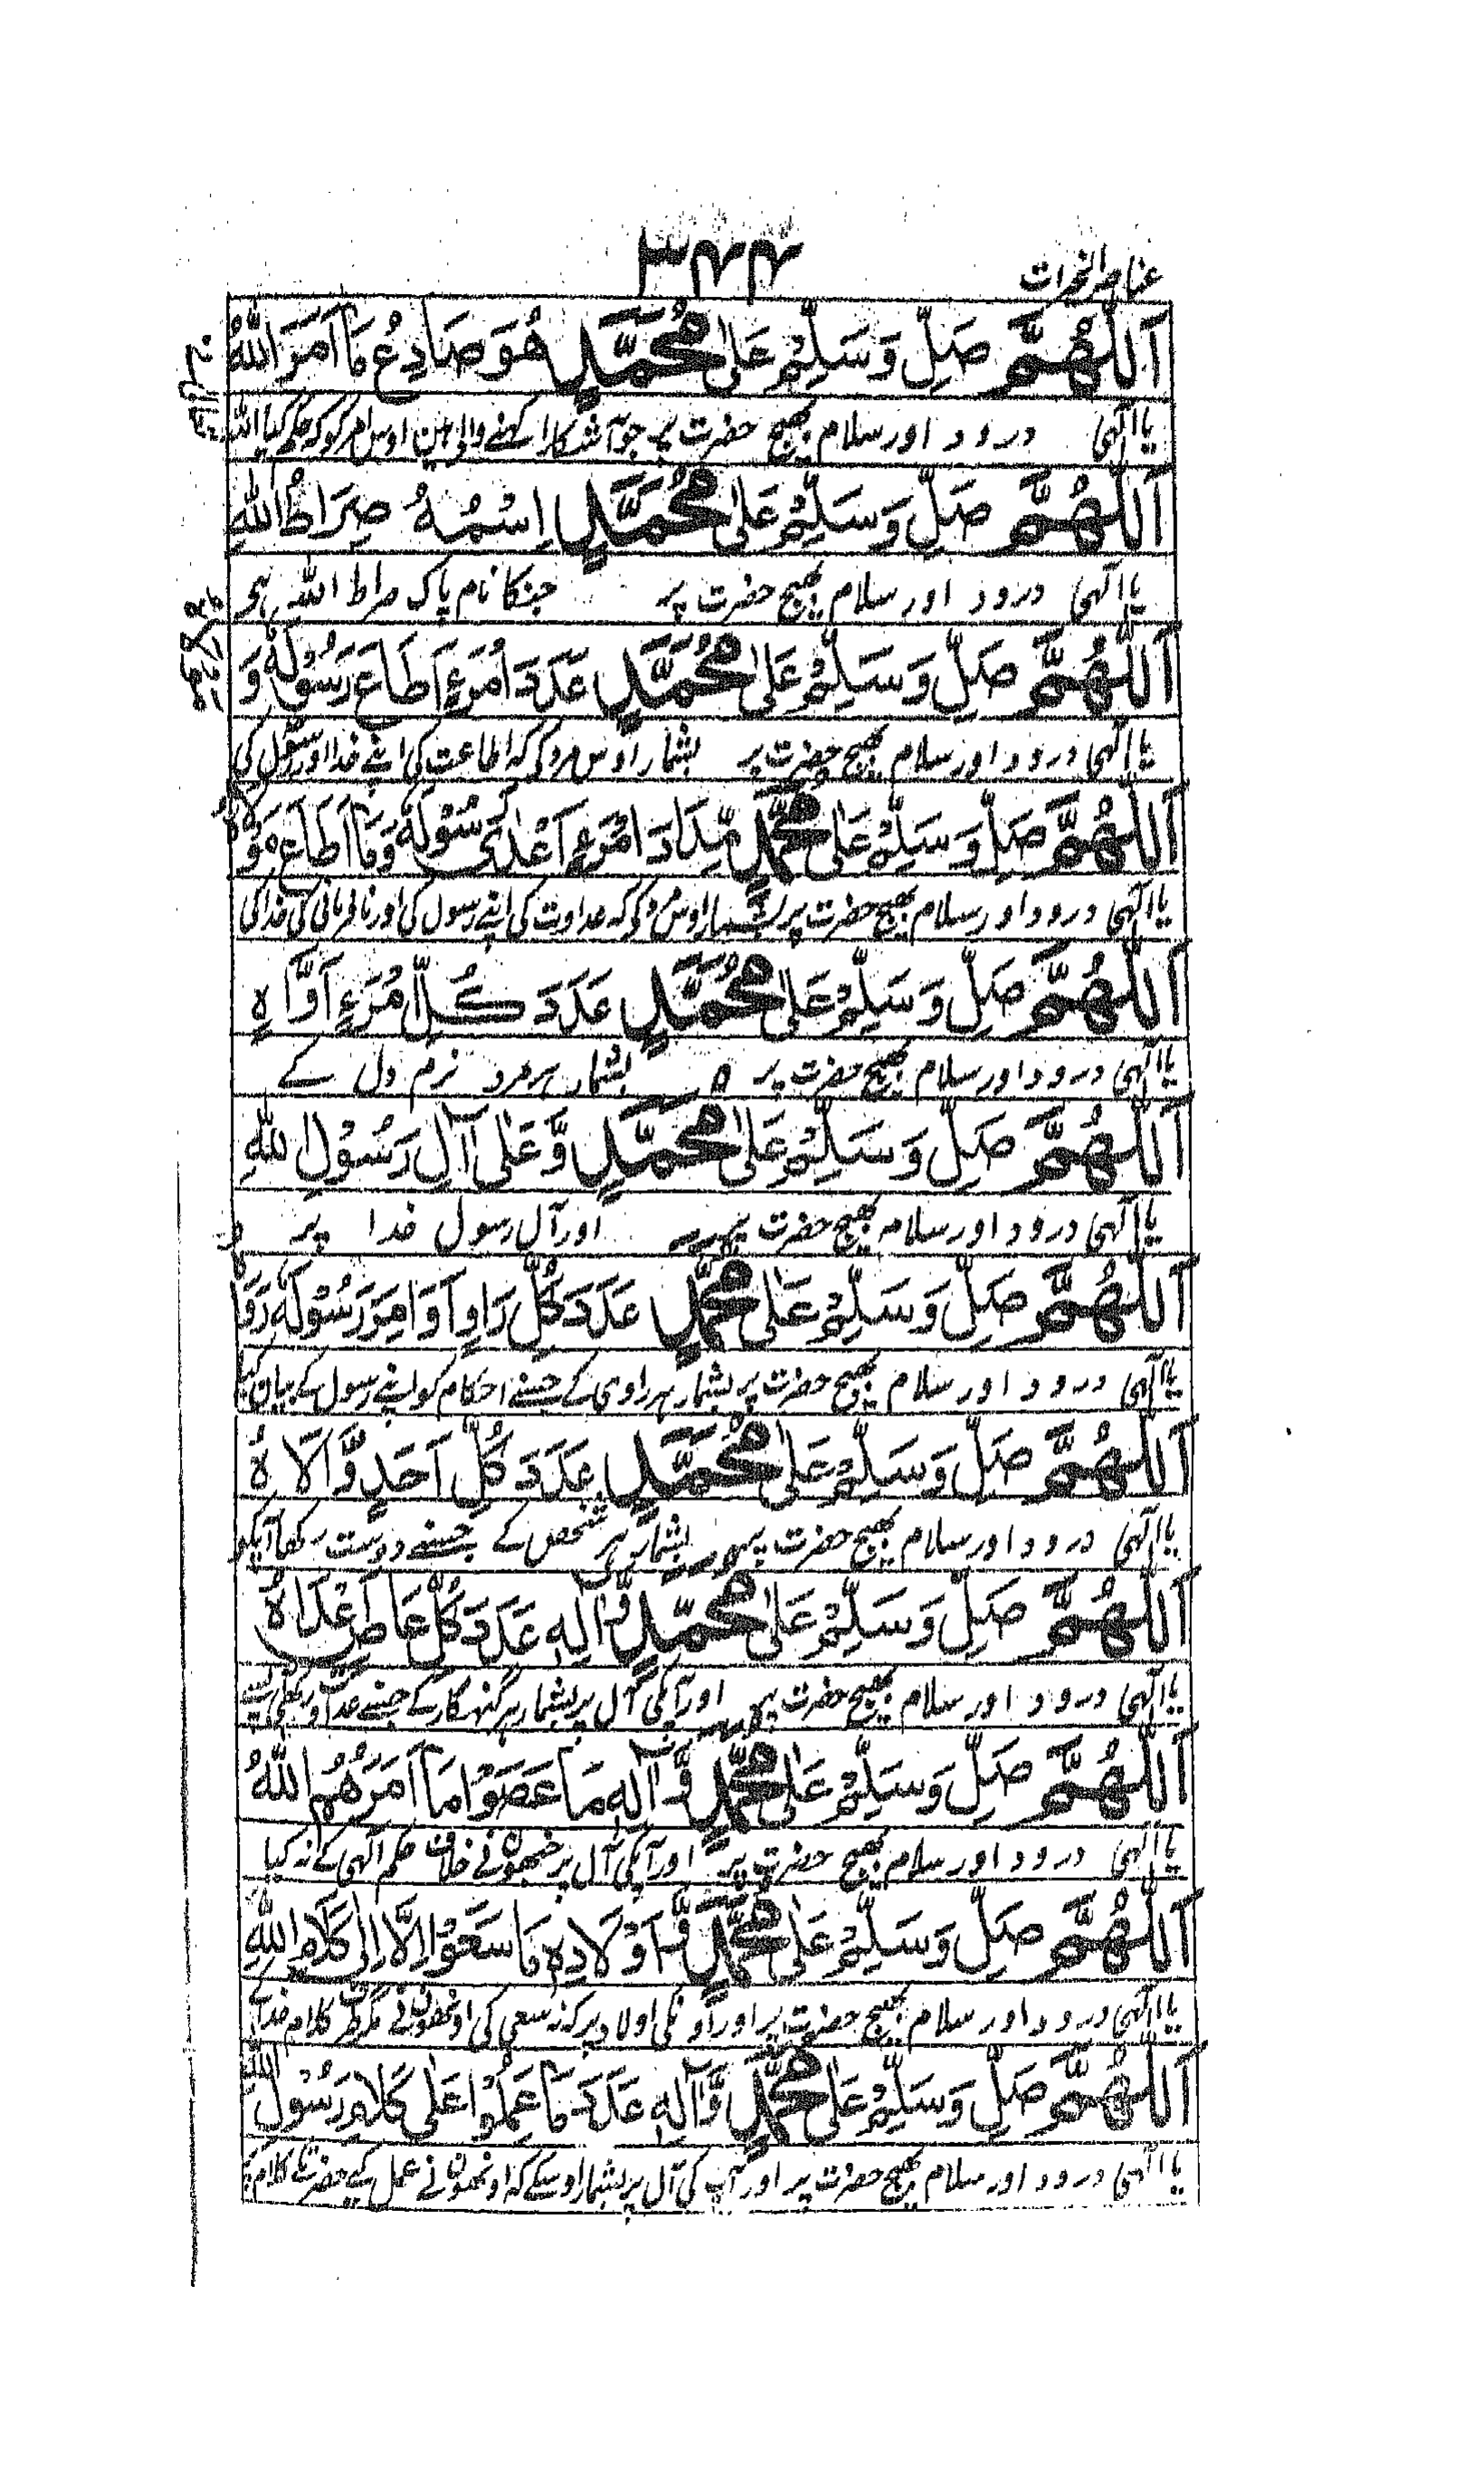 عناصر الخیرات
۳۴۴
اَللّٰهُمَّ صَلِّ وَسَلِّمْ عَلٰى مُحَمَّدٍ هُوَ صَادِعُ مَا اَمَرَ اللّٰهُ
یا الٰہی درود اور سلام بھیج حضرت پر جو آشکارا کہنے والی ہین اوس امر کو کہ حکم کیا اللہ
اَللّٰهُمَّ صَلِّ وَسَلِّمْ عَلٰى مُحَمَّدٍ اِسْمُهٗ صِرَاطُ اللّٰهِ
یا الٰہی درود اور سلام بھیج حضرت پر جنکا نام پاک صراط اللہ ہی
اَللّٰهُمَّ صَلِّ وَسَلِّمْ عَلٰى مُحَمَّدٍ عَدَدَ امْرَءٍ اَطَاعَ رَسُوْلَهٗ وَ
یا الٰہی درود اور سلام بھیج حضرت پر بشمار اوس مرد کی کہ اطاعت کی اپنے خدا اور رسول کی
اَللّٰهُمَّ صَلِّ وَسَلِّمْ عَلٰى مُحَمَّدٍ مِّدَادَ امْرَءٍ اَعْدٰى رَسُوْلَهٗ وَمَا اَطَاعَ
یا الٰہی درود اور سلام بھیج حضرت پر بشمار اوس مرد کی کہ عداوت کی اپنے رسول کی اور نافرمانی کی خدا کی
اَللّٰهُمَّ صَلِّ وَسَلِّمْ عَلٰى مُحَمَّدٍ عَدَدَ كُلِّ امْرَءٍ اَوَّاهٍ
یا الٰہی درود اور سلام بھیج حضرت پر بشمار ہر مرد نرم دل کے
اَللّٰهُمَّ صَلِّ وَسَلِّمْ عَلٰى مُحَمَّدٍ وَّعَلٰى آلِ رَسُوْلِ اللّٰهِ
یا الٰہی درود اور سلام بھیج حضرت پر اور آل رسول خدا پر
اَللّٰهُمَّ صَلِّ وَسَلِّمْ عَلٰى مُحَمَّدٍ عَدَدَ كُلِّ رَاوٍ اَوَامِرَ رَسُوْلِهٖ رَوَاهُ
یا الٰہی درود اور سلام بھیج حضرت پر بشمار ہر راوی کے جسنے احکام کو اپنے رسول کے بیان کیا
اَللّٰهُمَّ صَلِّ وَسَلِّمْ عَلٰى مُحَمَّدٍ عَدَدَ كُلِّ اَحَدٍ وَّالَاهُ
یا الٰہی درود اور سلام بھیج حضرت پر بشمار ہر شخص کے جسنے دوست رکھا آپکو
اَللّٰهُمَّ صَلِّ وَسَلِّمْ عَلٰى مُحَمَّدٍ وَّآلِهٖ عَدَدَ كُلِّ عَاصٍ عَدَاهُ
یا الٰہی درود اور سلام بھیج حضرت پر اور آپکی آل پر بشمار ہر گنہگار کے جسنے عداوت رکھی
اَللّٰهُمَّ صَلِّ وَسَلِّمْ عَلٰى مُحَمَّدٍ وَّآلِهٖ مَا عَصَوْا مَا اَمَرَهُمُ اللّٰهُ
یا الٰہی درود اور سلام بھیج حضرت پر اور آپکی آل پر جنھوں نے خلاف حکم الٰہی کے نہ کیا
اَللّٰهُمَّ صَلِّ وَسَلِّمْ عَلٰى مُحَمَّدٍ وَّاَوْلَادِهٖ مَا سَعَوْا اِلَّا اِلٰى كَلَامِ اللّٰهِ
یا الٰہی درود اور سلام بھیج حضرت پر اور اونکی اولاد پر کہ نہ سعی کی اونھوں نے مگر طرف کلام خدا کے
اَللّٰهُمَّ صَلِّ وَسَلِّمْ عَلٰى مُحَمَّدٍ وَّآلِهٖ عَدَدَ مَا عَمِلُوْا عَلٰى كَلَامِ رَسُوْلِ اللّٰهِ
یا الٰہی درود اور سلام بھیج حضرت پر اور آپ کی آل پر بشمار اوسکے کہ اونھوں نے عمل کیے حضرت کے کلام پر